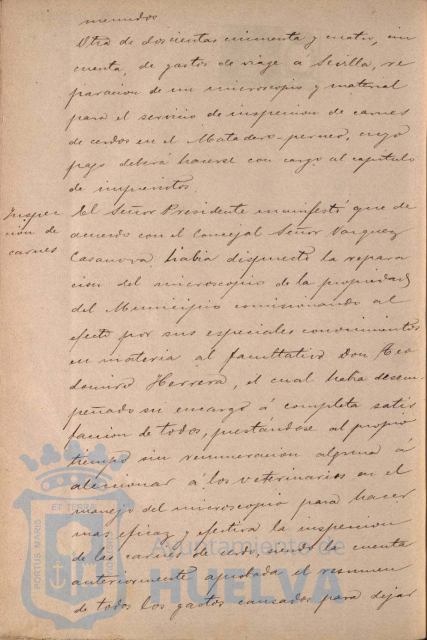 menudos
Otra de doscientas cincuenta y cuatro, cin
cuenta, de gastos de viage a Sevilla, re
paracion de un microscopio y material
para el servicio de inspeccion de carnes
de cerdos en el Matadero-perneo, cuyo
pago deberá hacerse con cargo al capitulo
de imprevistos.
Inspec
cion de
carnes
El Señor Presidente manifestó que de
acuerdo con el Concejal Señor Vazquez
Casanova habia dispuesto la repara
cion del microscopio de la propiedad
del Municipio comisionando al
efecto por sus especiales conocimientos
en materia al facultativo Don Teo
domiro Herrera, el cual habia desem
peñado su encargo á completa satis
faccion de todos, prestandose al propio
tiempo sin remuneracion alguna á
aleccionar á los veterinarios en el
manejo del microscopio para hacer
mas eficaz y efectiva la inspeccion
de las carnes de cerdo, siendo la cuenta
anteriormente aprobada el resumen
de todos los gastos causados para dejar
PORTUS MARIS ET TE
Ayuntamiento de
HUELVA